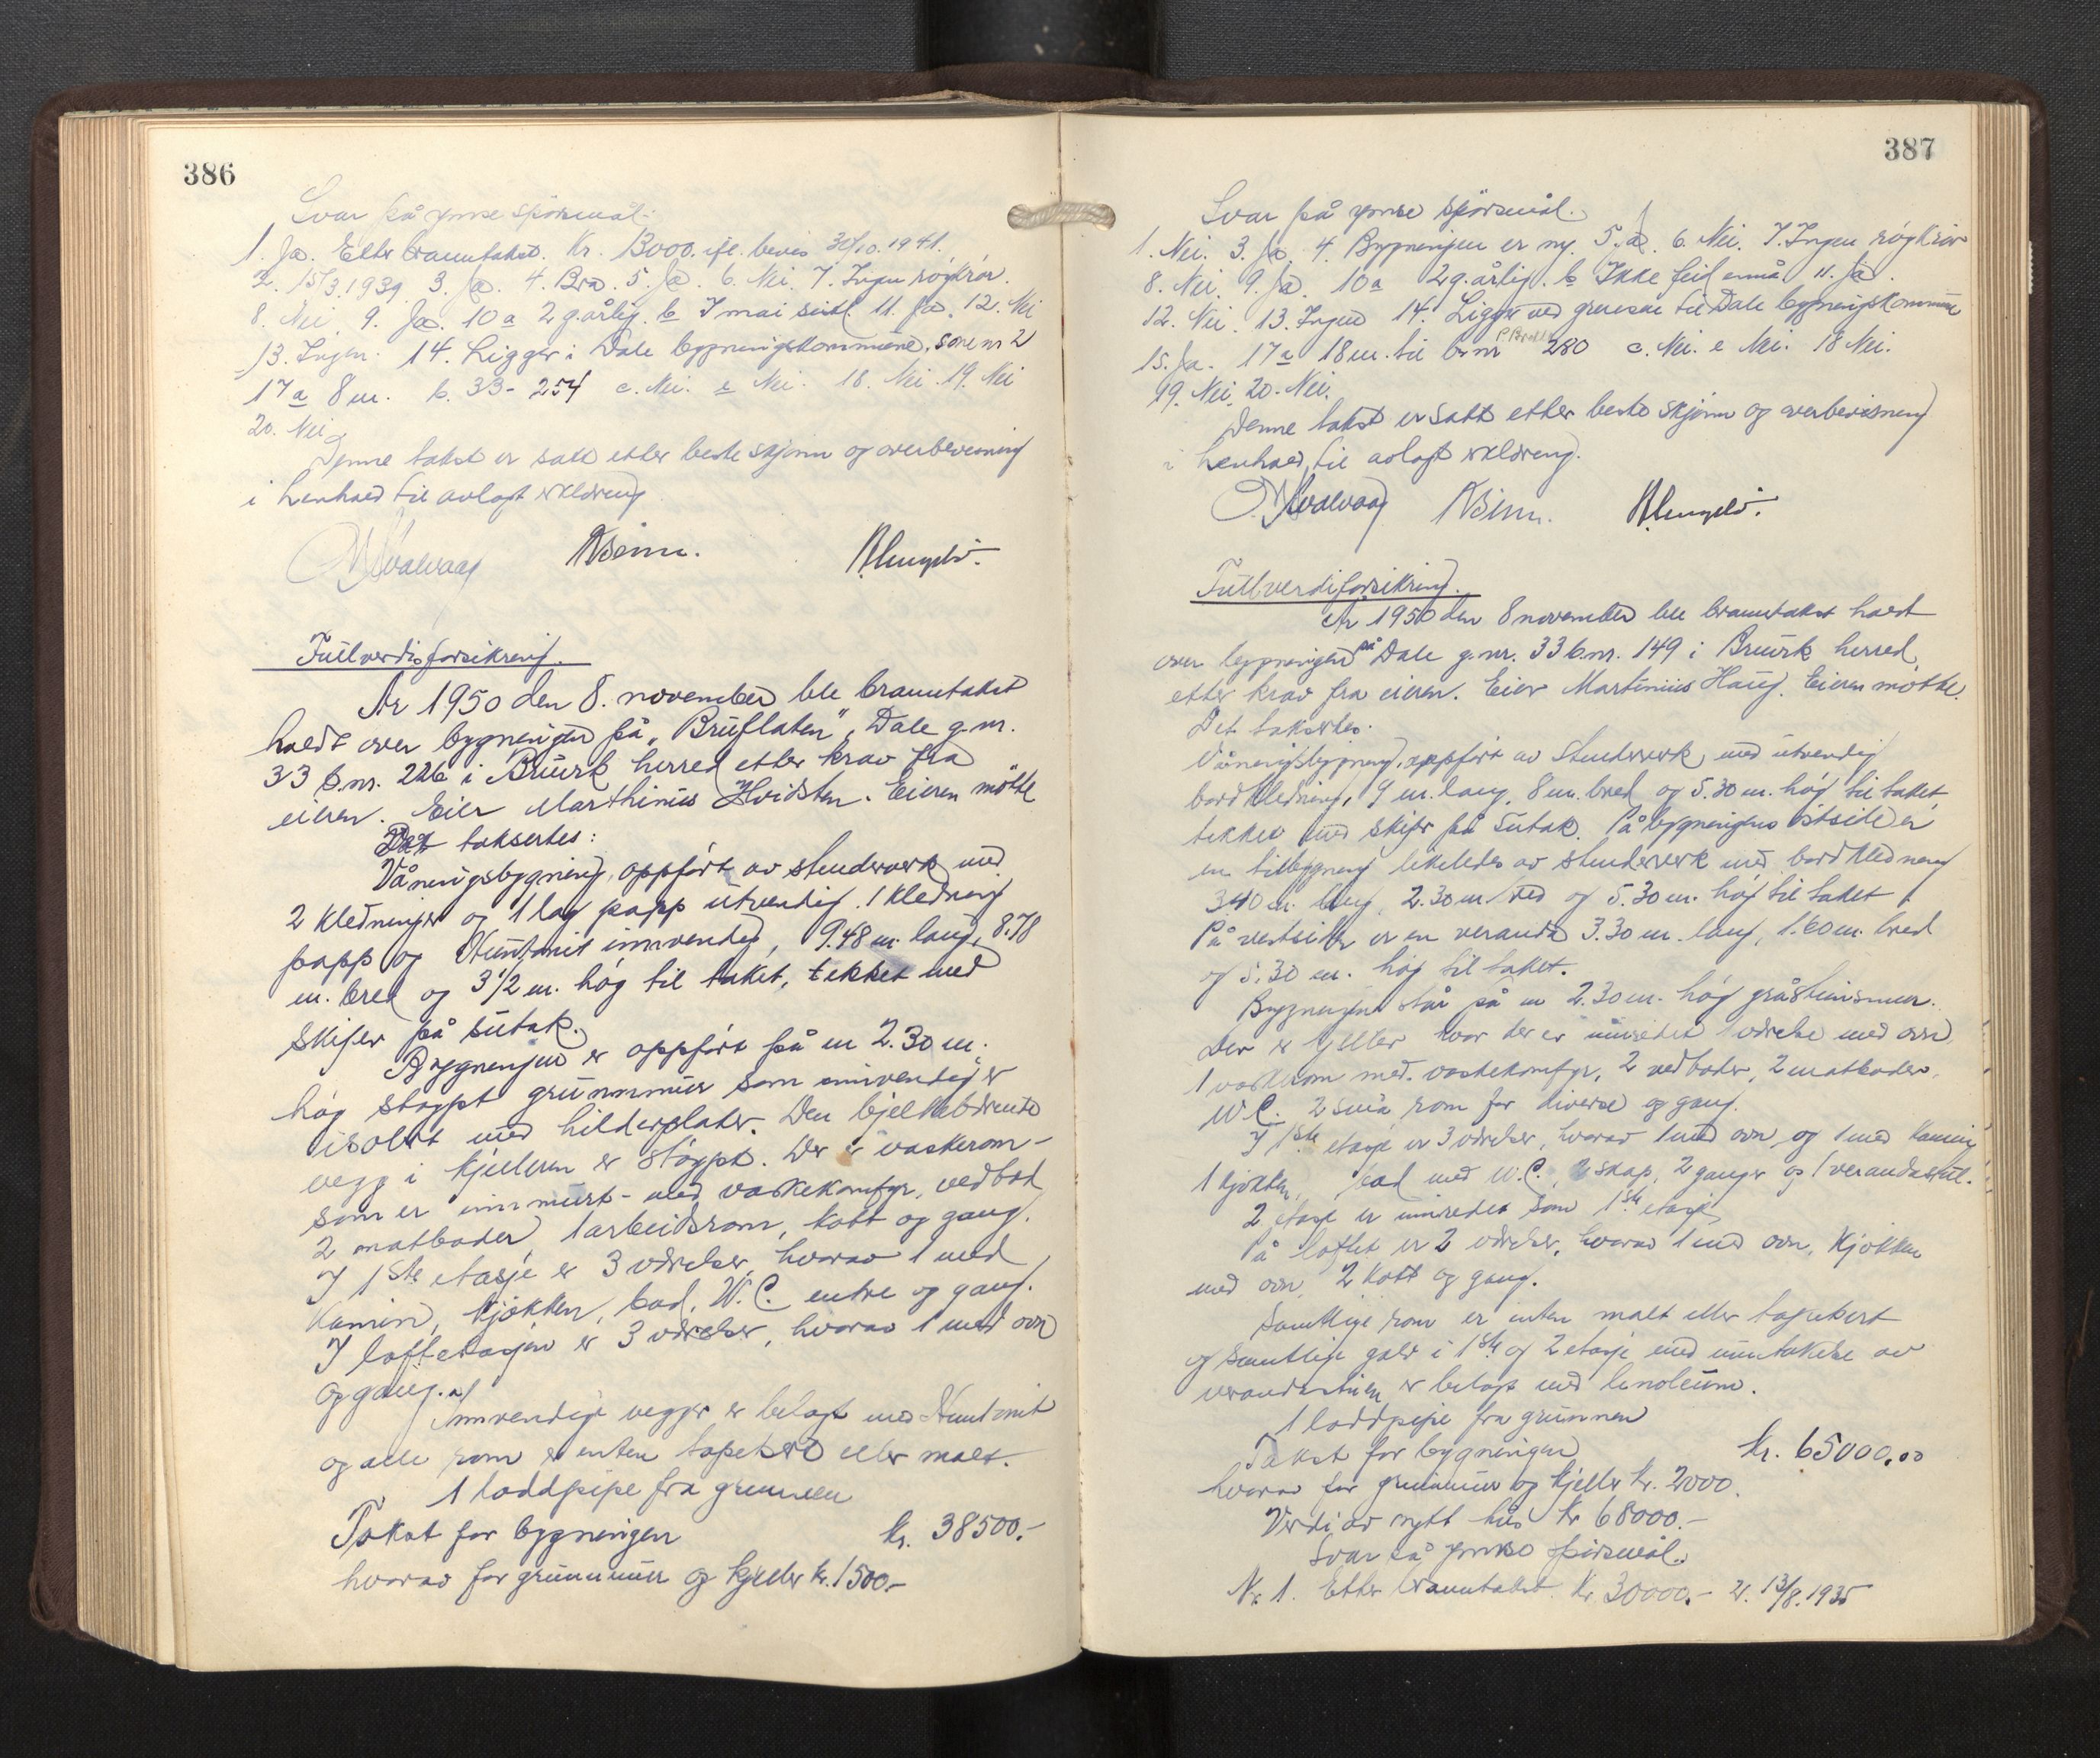 386
Svar på ymse spörsmål.
1. Ja. Etter branntakst. Kr. 13000. ifl. bevis 30/10.1941.
2. 15/3.1939 3. Ja. 4. Bra. 5. Ja. 6. Nei. 7. Ingen rögkrör.
8. Nei. 9. Ja. 10a 2 g. årlig. b I mai sist. 11. Ja. 12. Nei
13. Ingen. 14. Ligger i Dale bygningskommune, sone nr 2
17a 8 m. b. 33-254 c. Nei. e Nei. 18. Nei. 19. Nei
20. Nei
Denne takst er satt etter beste skjönn og overbevisning
i henhold til avlagt erklæring
Fullverdiforsikring.
År 1950 den 8. november ble branntakst
holdt over bygningen på "Bruflaten", Dale g.nr.
33 b.nr. 226 i Bruvik herred etter krav fra
eieren. Eier Marthinus Hvidsten. Eieren mötte
Det taksertes:
Våningsbygning, oppfört av stenderverk med
2 kledninger og 1 lag papp utvendig. 1 kledning
papp og Huntonit innvendig, 9.48 m. lang, 8.78
m. bred og 3 1/2 m. hög til taket, tekket med
skifer på sutak.
Bygningen er oppfört på en 2.30 m.
hög stöypt grunnmur som innvendig er
isolert med hilderplater. Den bjelkebærende
vegg i kjelleren er stöypt. Der er vaskerom -
som er innmurt - med vaskekomfyr, vedbod
2 matboder 1 arbeidsrom, kott og gang.
I 1ste etasje er 3 værelser, hvorav 1 med
Kamin, kjökken, bad, W.C. entre og gang.
I loftetasjen er 3 værelser, hvorav 1 med ovn
og gang.
Innvendige vegger er belagt med Huntonit
og alle rom er enten tapetsert eller malt.
1 loddpipe fra grunnen
Takst for bygningen kr. 38500.-
hvorav for grunnmur og kjeller kr. 1500.-
387
Svar på ymse spörsmål.
1. Nei. 3. Ja. 4. Bygningen er ny. 5. Ja. 6. Nei. 7. Ingen rögkrör
8. Nei. 9. Ja. 10a 2 g. årlig. b Ikke feid ennå 11. Ja.
12. Nei. 13. Ingen 14. Ligger ved grensen til Dale bygningskommune
15. Ja. 17a 18 m. til b.nr 280 c. Nei. e Nei. 18 Nei.
19. Nei. 20. Nei.
Denne takst er satt etter beste skjönn og overbevisning
i henhold til avlagt erklæring.
Fullverdiforsikring.
År 1950 den 8 november ble branntakst holdt
over bygningen på Dale g.nr. 33 b.nr. 149 i Bruvik herred
etter krav fra eieren. Eier Martinius Haug. Eieren mötte.
Det taksertes.
Våningsbygning, oppfört av stenderverk med utvendig
bordkledning, 9 m. lang, 8 m. bred og 5.30 m. hög til taket
tekket med skifer på sutak. På bygningens östside er
en tilbygning likeledes av stenderverk med bordkledning
3.40 m. lang, 2.30 m. bred og 5.30 m. hög til taket
På vestsiden er en veranda 3.30 m. lang, 1.60 m. bred
og 5.30 m. hög til taket.
Bygningen står på en 2.30 m. hög gråsteinsmur.
Der er kjeller hvor der er innredet 1 værelse med ovn
1 vaskerom med vaskekomfyr, 2 vedboder, 2 matboder,
W.C. 2 små rom for diverse og gang.
I 1ste etasje er 3 værelser, hvorav 1 med ovn og 1 med kamin
1 kjökken, bad med W.C., 2 skap, 2 ganger og 1 verandastue.
2 etasje er innredet som 1ste etasje
På loftet er 2 værelser, hvorav 1 med ovn, kjökken
med ovn, 2 kott og gang.
Samtlige rom er enten malt eller tapetsert
og samtlige golv i 1ste og 2 etasje med unntakelse av
verandastuen er belagt med linoleum.
1 loddpipe fra grunnen
Takst for bygningen kr. 65000.00
hvorav for grunnmur og kjeller kr. 2000.
Verdi av nytt hus kr 68000.-
Svar på ymse spörsmål.
Nr. 1. Etter branntakst. Kr. 30000.- 2. 13/8.1935